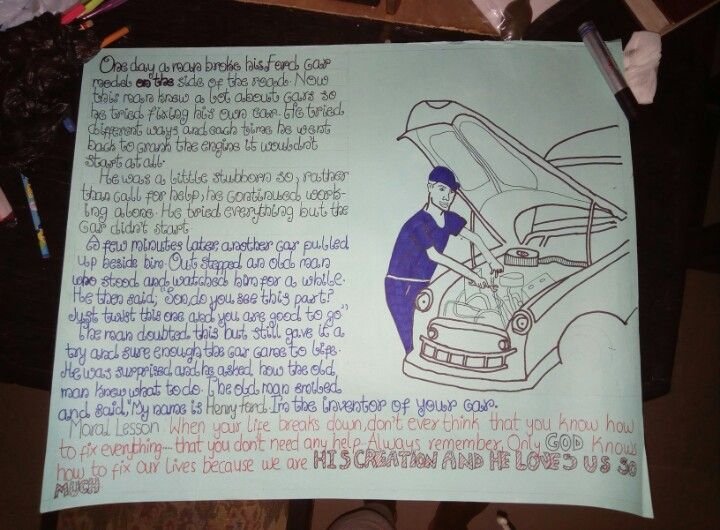 One day, a man broke his Ford car
model on the side of the road. Now
this man knew a lot about cars so
he tried fixing his own car. He tried
different ways and each time he went
back to crank the engine it wouldn't
start at all.
He was a little stubborn so, rather
than call for help, he continued work-
ing alone. He tried everything but the
car didn't start.
A few minutes later, another car pulled
up beside him. Out stepped an old man
who stood and watched him for a while.
He then said, "Son, do you see this part?
Just twist this one and you are good to go"
The man doubted this but still gave it a
try and sure enough the car came to life.
He was surprised and he asked how the old
man knew what to do. The old man smiled
and said, "My name is Henry Ford. Im the inventor of your car.
Moral Lesson: When your life breaks down, don't ever think that you know how
to fix everything... that you don't need any help. Always remember, Only GOD knows
how to fix our lives because we are HIS CREATION AND HE LOVES US SO
MUCH